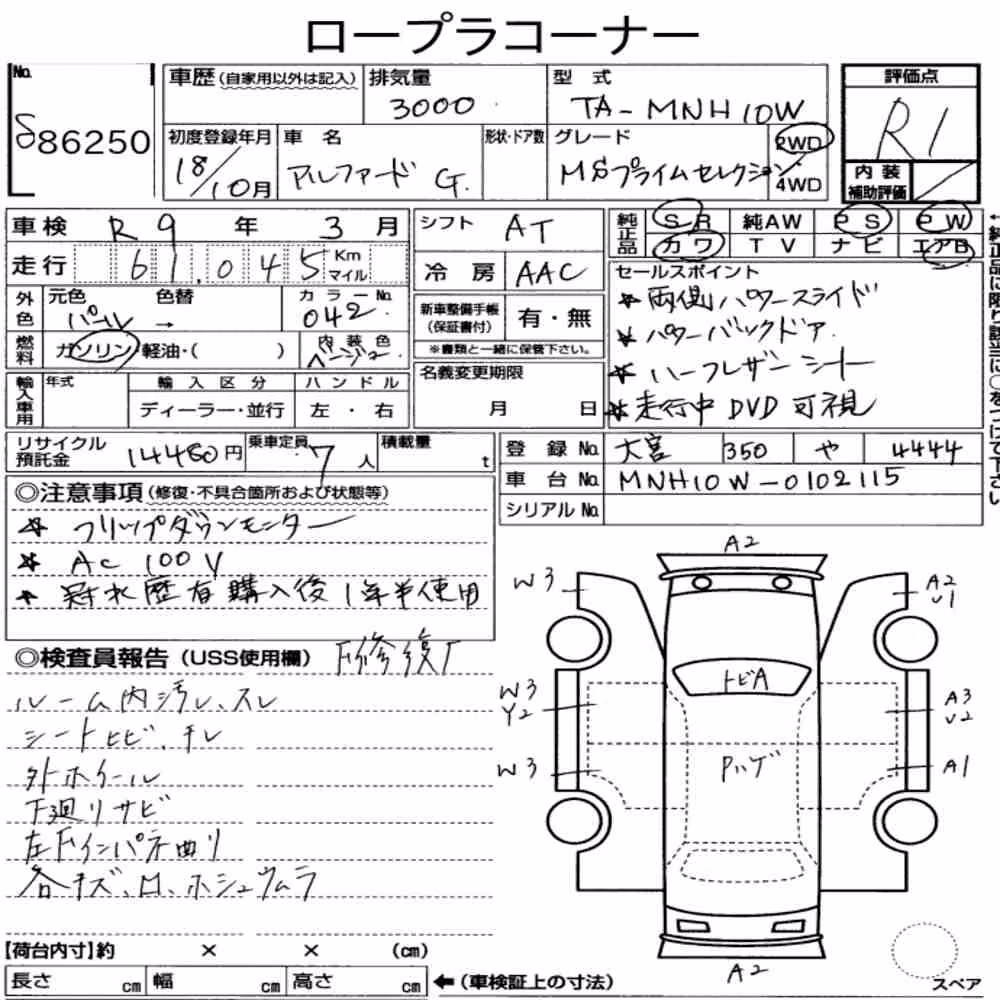 ロープラコーナー
No.
86250
車歴 (自家用以外は記入)
排気量
3000
型式
TA-MNH10W
評価点
R1
初度登録年月
18/10月
車名
アルファード G.
形状・ドア数
グレード
MSプライムセレクション
2WD
4WD
内装
補助評価
車検 R9年 3月
シフト AT
純正品
SR 純AW PS PW
カワ TV ナビ エアB
走行 61,045 Km
マイル
冷房 AAC
セールスポイント
★ 両側パワースライド
★ パワーバックドア.
★ ハーフレザーシート
★ 走行中DVD可視
外色
元色 色替
パール →
カラーNo.
042
新車整備手帳
(保証書付)
有・無
※書類と一緒に保管下さい。
燃料
ガソリン・軽油・( )
内装色
ベージュ
輸入車用
年式
輸入区分
ディーラー・並行
ハンドル
左・右
名義変更期限
月 日
リサイクル
預託金
14480円
乗車定員
7人
積載量
t
登録No. 大宮 350 や 4444
車台No. MNH10W-0102115
シリアルNo.
◎注意事項 (修復・不具合箇所および状態等)
★ フリップダウンモニター
★ AC 100V
★ 冠水歴有購入後1年半使用
◎検査員報告 (USS使用欄) 「修復」
ルーム内汚レ、スレ
シートヒビ、チレ
外ホイール
下廻リサビ
左Fインパネ曲リ
各キズ、凹、ホシュウムラ
A2
W3
A2
U1
トビA
W3
Y2
A3
U2
Pハゲ
W3
A1
A2
スペア
【荷台内寸】約 × × (cm)
長さ cm 幅 cm 高さ cm
←(車検証上の寸法)